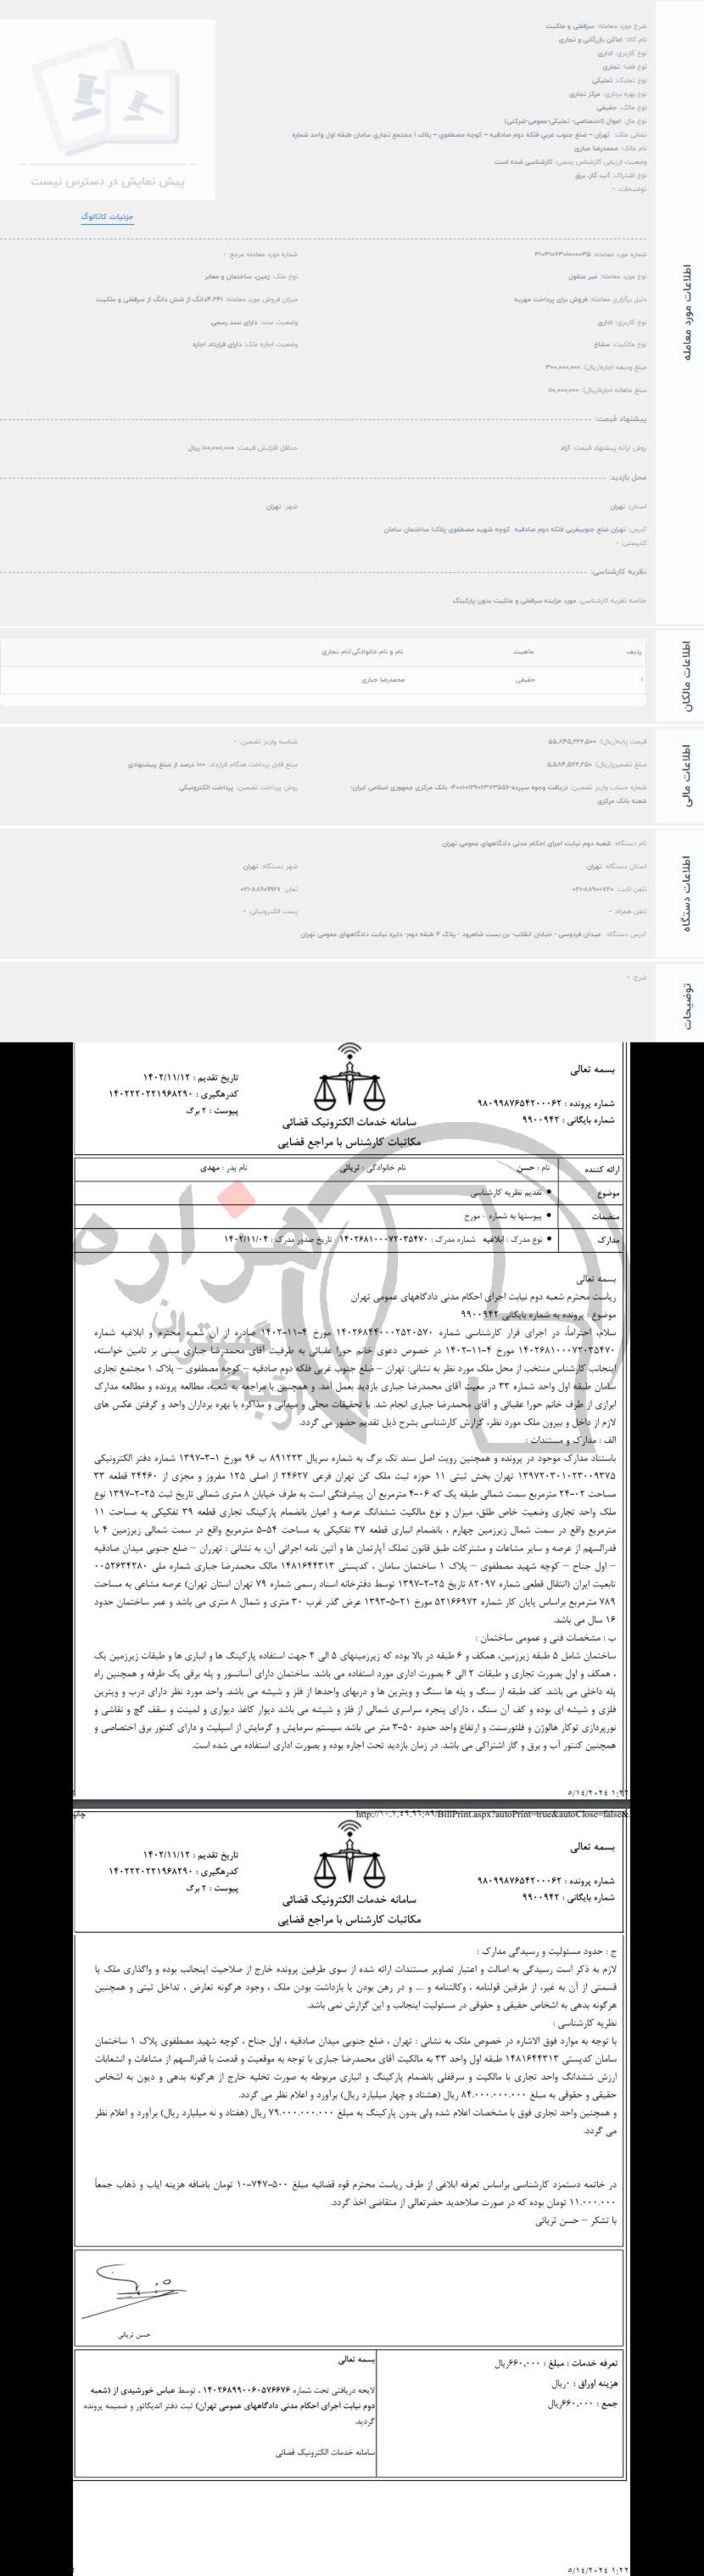 شرح مورد معامله: سرقفلی و ملکیت
نام کالا: اماکن بازرگانی و تجاری
نوع کاربری: اداری
نوع فضا: تجاری
نوع تملیک: تملیکی
نوع بهره برداری: مرکز تجاری
نوع مالک: حقیقی
نوع مال: اموال (اختصاصی- تملیکی-عمومی-شرکتی)
نشانی ملک: تهران – ضلع جنوب غربی فلکه دوم صادقیه – کوچه مصطفوی – پلاک ۱ مجتمع تجاری سامان طبقه اول واحد شماره
نام مالک: محمدرضا جباری
وضعیت ارزیابی کارشناس رسمی: کارشناسی شده است
نوع اشتراک: آب، گاز، برق
توضیحات: -
پیش نمایش در دسترس نیست
جزئیات کاتالوگ
اطلاعات مورد معامله
شماره مورد معامله: ۳۱۰۳۱۰۶۳۰۱۰۰۰۰۳۵
شماره مورد معامله مرجع: -
نوع مورد معامله: غیر منقول
نوع ملک: زمین، ساختمان و معابر
دلیل برگزاری معامله: فروش برای پرداخت مهریه
میزان فروش مورد معامله: ۴.۲۴۱دانگ از شش دانگ از سرقفلی و ملکیت
نوع کاربری: اداری
وضعیت سند: دارای سند رسمی
نوع مالکیت: مشاع
وضعیت اجاره ملک: دارای قرارداد اجاره
مبلغ ودیعه اجاره(ریال): ۳۰۰,۰۰۰,۰۰۰
مبلغ ماهانه اجاره(ریال): ۱۱۰,۰۰۰,۰۰۰
پیشنهاد قیمت:
روش ارائه پیشنهاد قیمت: آزاد
حداقل افزایش قیمت: ۱۰۰,۰۰۰,۰۰۰ ریال
محل بازدید:
استان: تهران
شهر: تهران
آدرس: تهران ضلع جنوبیغربی فلکه دوم صادقیه . کوچه شهید مصطفوی پلاک۱ ساختمان سامان
کدپستی: -
نظریه کارشناسی:
خلاصه نظریه کارشناسی: مورد مزایده سرقفلی و ملکیت بدون پارکینگ
اطلاعات مالکان
ردیف ماهیت نام و نام خانوادگی/نام تجاری
۱ حقیقی محمدرضا جباری
اطلاعات مالی
قیمت پایه(ریال): ۵۵,۸۴۵,۲۲۲,۵۰۰
شناسه واریز تضمین: -
مبلغ تضمین(ریال): ۵,۵۸۴,۵۲۲,۲۵۰
مبلغ قابل پرداخت هنگام قرارداد: ۱۰۰ درصد از مبلغ پیشنهادی
شماره حساب واریز تضمین: دریافت وجوه سپرده-۴۰۰۱۰۱۲۹۰۶۳۷۳۵۵۶- بانک مرکزی جمهوری اسلامی ایران- شعبه بانک مرکزی
روش پرداخت تضمین: پرداخت الکترونیکی
اطلاعات دستگاه
نام دستگاه: شعبه دوم نیابت اجرای احکام مدنی دادگاههای عمومی تهران
استان دستگاه: تهران
شهر دستگاه: تهران
تلفن ثابت: ۰۲۱-۸۸۹۰۰۷۲۰
نمابر: ۰۲۱-۸۸۹۰۹۹۲۷
تلفن همراه: -
پست الکترونیکی: -
آدرس دستگاه: میدان فردوسی - خیابان انقلاب- بن بست شاهرود - پلاک ۴ طبقه دوم- دایره نیابت دادگاههای عمومی تهران
توضیحات
شرح: -
بسمه تعالی
شماره پرونده : ۹۸۰۹۹۸۷۶۵۴۲۰۰۰۶۲
شماره بایگانی : ۹۹۰۰۹۴۲
سامانه خدمات الکترونیک قضائی
مکاتبات کارشناس با مراجع قضایی
تاریخ تقدیم : ۱۴۰۲/۱۱/۱۲
کدرهگیری : ۱۴۰۲۲۲۰۲۲۱۹۶۸۲۹۰
پیوست : ۲ برگ
ارائه کننده نام : حسن نام خانوادگی : ثریائی نام پدر : مهدی
موضوع • تقدیم نظریه کارشناسی
منضمات • پیوستها به شماره - مورخ
مدارک • نوع مدرک : ابلاغیه شماره مدرک : ۱۴۰۲۶۸۱۰۰۰۷۲۰۳۵۴۷۰ تاریخ صدور مدرک : ۱۴۰۲/۱۱/۰۴
بسمه تعالی
ریاست محترم شعبه دوم نیابت اجرای احکام مدنی دادگاههای عمومی تهران
موضوع : پرونده به شماره بایگانی ۹۹۰۰۹۴۲
سلام، احتراماً، در اجرای قرار کارشناسی شماره ۱۴۰۲۶۸۴۴۰۰۰۲۵۲۰۵۷۰ مورخ ۴-۱۱-۱۴۰۲ صادره از آن شعبه محترم و ابلاغیه شماره
۱۴۰۲۶۸۱۰۰۰۷۲۰۳۵۴۷۰ مورخ ۴-۱۱-۱۴۰۲ در خصوص دعوی خانم حورا عقبائی به طرفیت آقای محمدرضا جباری مبنی بر تامین خواسته،
اینجانب کارشناس منتخب از محل ملک مورد نظر به نشانی: تهران – ضلع جنوب غربی فلکه دوم صادقیه – کوچه مصطفوی – پلاک ۱ مجتمع تجاری
سامان طبقه اول واحد شماره ۳۳ در معیت آقای محمدرضا جباری بازدید بعمل آمد. و همچنین با مراجعه به شعبه، مطالعه پرونده و مطالعه مدارک
ابرازی از طرف خانم حورا عقبائی و آقای محمدرضا جباری انجام شد. با تحقیقات محلی و میدانی و مذاکره با بهره برداران واحد و گرفتن عکس های
لازم از داخل و بیرون ملک مورد نظر، گزارش کارشناسی بشرح ذیل تقدیم حضور می گردد.
الف : مدارک و مستندات :
باستناد مدارک موجود در پرونده و همچنین رویت اصل سند تک برگ به شماره سریال ۸۹۱۲۲۳ ب ۹۶ مورخ ۱-۳-۱۳۹۷ شماره دفتر الکترونیکی
۱۳۹۷۲۰۳۰۱۰۲۳۰۰۹۳۷۵ تهران بخش ثبتی ۱۱ حوزه ثبت ملک کن تهران فرعی ۲۴۶۲۷ از اصلی ۱۲۵ مفروز و مجزی از ۲۴۴۶۰ قطعه ۳۳
مساحت ۰۲-۲۴ مترمربع سمت شمالی طبقه یک که ۰۶-۴ مترمربع آن پیشرفتگی است به طرف خیابان ۸ متری شمالی تاریخ ثبت ۲۵-۲-۱۳۹۷ نوع
ملک واحد تجاری وضعیت خاص طلق، میزان و نوع مالکیت ششدانگ عرصه و اعیان بانضمام پارکینگ تجاری قطعه ۳۹ تفکیکی به مساحت ۱۱
مترمربع واقع در سمت شمال زیرزمین چهارم ، بانضمام انباری قطعه ۳۷ تفکیکی به مساحت ۵۴-۵ مترمربع واقع در سمت شمالی زیرزمین ۴ با
قدرالسهم از عرصه و سایر مشاعات و مشترکات طبق قانون تملک آپارتمان ها و آئین نامه اجرائی آن، به نشانی : تهرران – ضلع جنوبی میدان صادقیه
– اول جناح – کوچه شهید مصطفوی – پلاک ۱ ساختمان سامان ، کدپستی ۱۴۸۱۶۴۴۳۱۳ مالک محمدرضا جباری شماره ملی ۰۰۵۲۶۳۴۲۸۰
تابعیت ایران (انتقال قطعی شماره ۸۲۰۹۷ تاریخ ۲۵-۲-۱۳۹۷ توسط دفترخانه اسناد رسمی شماره ۷۹ تهران استان تهران) عرصه مشاعی به مساحت
۷۸۹ مترمربع براساس پایان کار شماره ۵۲۱۶۶۹۷۲ مورخ ۲۱-۵-۱۳۹۳ عرض گذر غرب ۳۰ متری و شمال ۸ متری می باشد و عمر ساختمان حدود
۱۶ سال می باشد.
ب : مشخصات فنی و عمومی ساختمان :
ساختمان شامل ۵ طبقه زیرزمین، همکف و ۶ طبقه در بالا بوده که زیرزمینهای ۵ الی ۲ جهت استفاده پارکینگ ها و انباری ها و طبقات زیرزمین یک
، همکف و اول بصورت تجاری و طبقات ۲ الی ۶ بصورت اداری مورد استفاده می باشد. ساختمان دارای آسانسور و پله برقی یک طرفه و همچنین راه
پله داخلی می باشد. کف طبقه از سنگ و پله ها سنگ و ویترین ها و دربهای واحدها از فلز و شیشه می باشد. واحد مورد نظر دارای درب و ویترین
فلزی و شیشه ای بوده و کف آن سنگ ، دارای پنجره سراسری شمالی از فلز و شیشه می باشد دیوار کاغذ دیواری و لمینت و سقف گچ و نقاشی و
نورپردازی توکار هالوژن و فلئورسنت و ارتفاع واحد حدود ۵۰-۳ متر می باشد سیستم سرمایش و گرمایش از اسپلیت و دارای کنتور برق اختصاصی و
همچنین کنتور آب و برق و گاز اشتراکی می باشد. در زمان بازدید تحت اجاره بوده و بصورت اداری استفاده می شده است.
۵/۱٤/۲۰۲٤ ۱:۲۲
بسمه تعالی
شماره پرونده : ۹۸۰۹۹۸۷۶۵۴۲۰۰۰۶۲
شماره بایگانی : ۹۹۰۰۹۴۲
سامانه خدمات الکترونیک قضائی
مکاتبات کارشناس با مراجع قضایی
تاریخ تقدیم : ۱۴۰۲/۱۱/۱۲
کدرهگیری : ۱۴۰۲۲۲۰۲۲۱۹۶۸۲۹۰
پیوست : ۲ برگ
ج : حدود مسئولیت و رسیدگی مدارک :
لازم به ذکر است رسیدگی به اصالت و اعتبار تصاویر مستندات ارائه شده از سوی طرفین پرونده خارج از صلاحیت اینجانب بوده و واگذاری ملک یا
قسمتی از آن به غیر، از طرفین قولنامه ، وکالتنامه و .... و در رهن بودن یا بازداشت بودن ملک ، وجود هرگونه تعارض ، تداخل ثبتی و همچنین
هرگونه بدهی به اشخاص حقیقی و حقوقی در مسئولیت اینجانب و این گزارش نمی باشد.
نظریه کارشناسی :
با توجه به موارد فوق الاشاره در خصوص ملک به نشانی : تهران ، ضلع جنوبی میدان صادقیه ، اول جناح ، کوچه شهید مصطفوی پلاک ۱ ساختمان
سامان کدپستی ۱۴۸۱۶۴۴۳۱۳ طبقه اول واحد ۳۳ به مالکیت آقای محمدرضا جباری با توجه به موقعیت و قدمت با قدرالسهم از مشاعات و انشعابات
ارزش ششدانگ واحد تجاری با مالکیت و سرقفلی بانضمام پارکینگ و انباری مربوطه به صورت تخلیه خارج از هرگونه بدهی و دیون به اشخاص
حقیقی و حقوقی به مبلغ ۸۴.۰۰۰.۰۰۰.۰۰۰ ریال (هشتاد و چهار میلیارد ریال) برآورد و اعلام نظر می گردد.
و همچنین واحد تجاری فوق با مشخصات اعلام شده ولی بدون پارکینگ به مبلغ ۷۹.۰۰۰.۰۰۰.۰۰۰ ریال (هفتاد و نه میلیارد ریال) برآورد و اعلام نظر
می گردد.
در خاتمه دستمزد کارشناسی براساس تعرفه ابلاغی از طرف ریاست محترم قوه قضائیه مبلغ ۵۰۰-۷۴۷-۱۰ تومان باضافه هزینه ایاب و ذهاب جمعاً
۱۱.۰۰۰.۰۰۰ تومان بوده که در صورت صلاحدید حضرتعالی از متقاضی اخذ گردد.
با تشکر – حسن ثریائی
حسن ثریائی
تعرفه خدمات : مبلغ : ۶۶۰,۰۰۰ریال
هزینه اوراق : ۰ریال
جمع : ۶۶۰,۰۰۰ریال
بسمه تعالی
لایحه دریافتی تحت شماره ۱۴۰۲۶۸۹۹۰۰۶۰۵۷۶۶۷۶ ، توسط عباس خورشیدی از (شعبه
دوم نیابت اجرای احکام مدنی دادگاههای عمومی تهران) ثبت دفتر اندیکاتور و ضمیمه پرونده
گردید.
سامانه خدمات الکترونیک قضائی
۵/۱٤/۲۰۲٤ ۱:۲۲